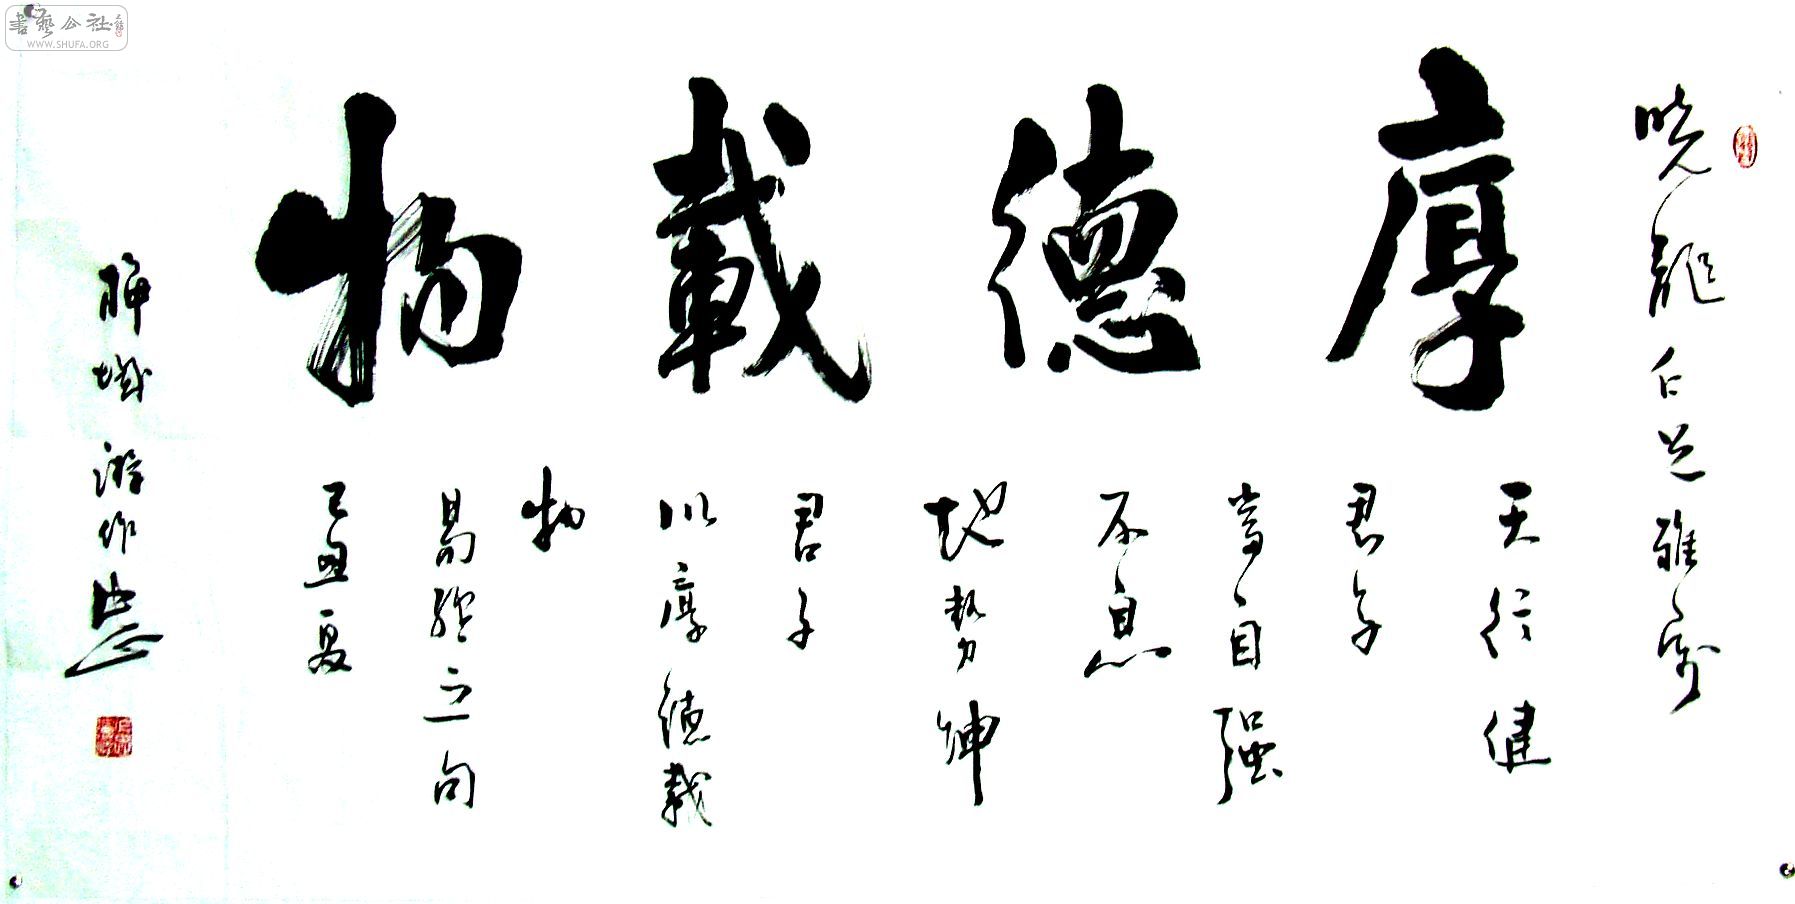 書藝公社
WWW.SHUFA.ORG
曉龍仁兄雅屬
厚德載物
天行健
君子
當自强
不息
地勢坤
君子
以厚德載
物
易經之句
己丑夏
聊城